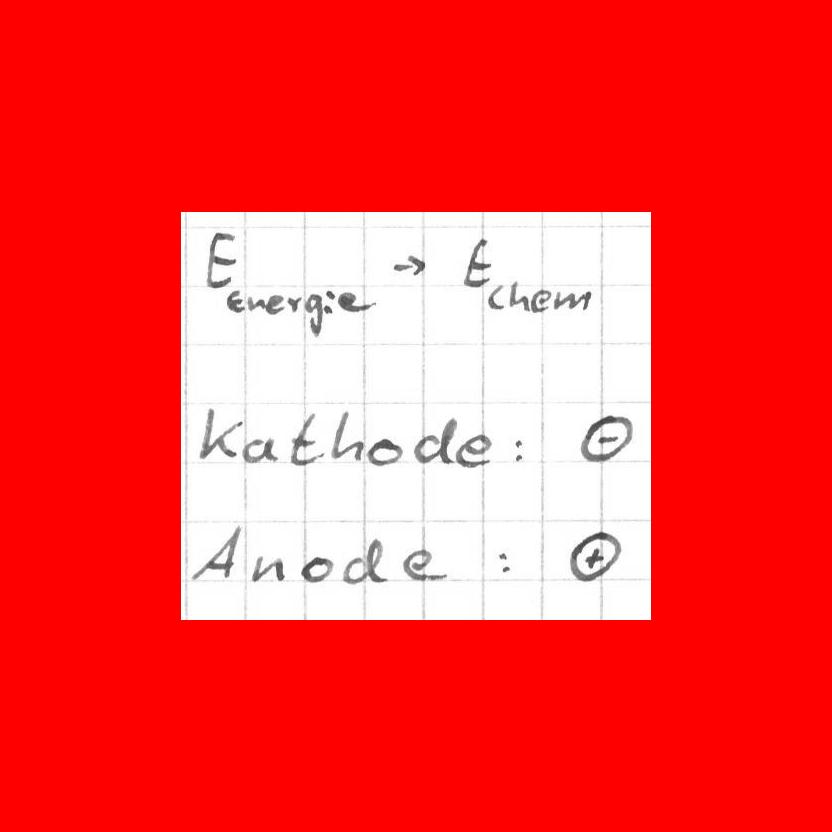 E Energie → E chem
Kathode: ⊖
Anode : ⊕